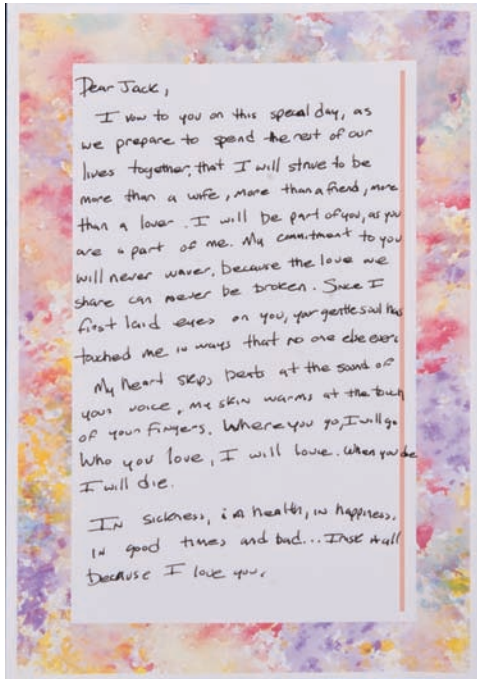 Dear Jack,
I vow to you on this special day, as
we prepare to spend the rest of our
lives together, that I will strive to be
more than a wife, more than a friend, more
than a lover. I will be part of you, as you
are a part of me. My commitment to you
will never waver, because the love we
share can never be broken. Since I
first laid eyes on you, your gentle soul has
touched me in ways that no one else ever
My heart skips beats at the sound of
your voice, my skin warms at the touch
of your fingers. Where you go, I will go
Who you love, I will love. When you die
I will die.
In sickness, in health, in happiness,
in good times and bad... I it all
because I love you.